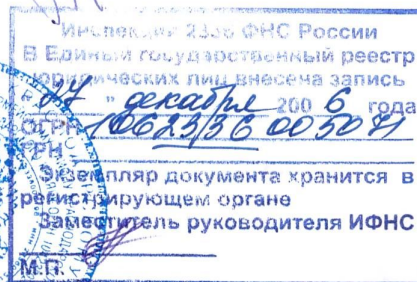 Инспекция ФНС России
В Единый государственный реестр
юридических лиц внесена запись
27 " декабря 2006 года
ОГРН 1062313600 5071
ГРН
Экземпляр документа хранится в
регистрирующем органе
Заместитель руководителя ИФНС
М.П.